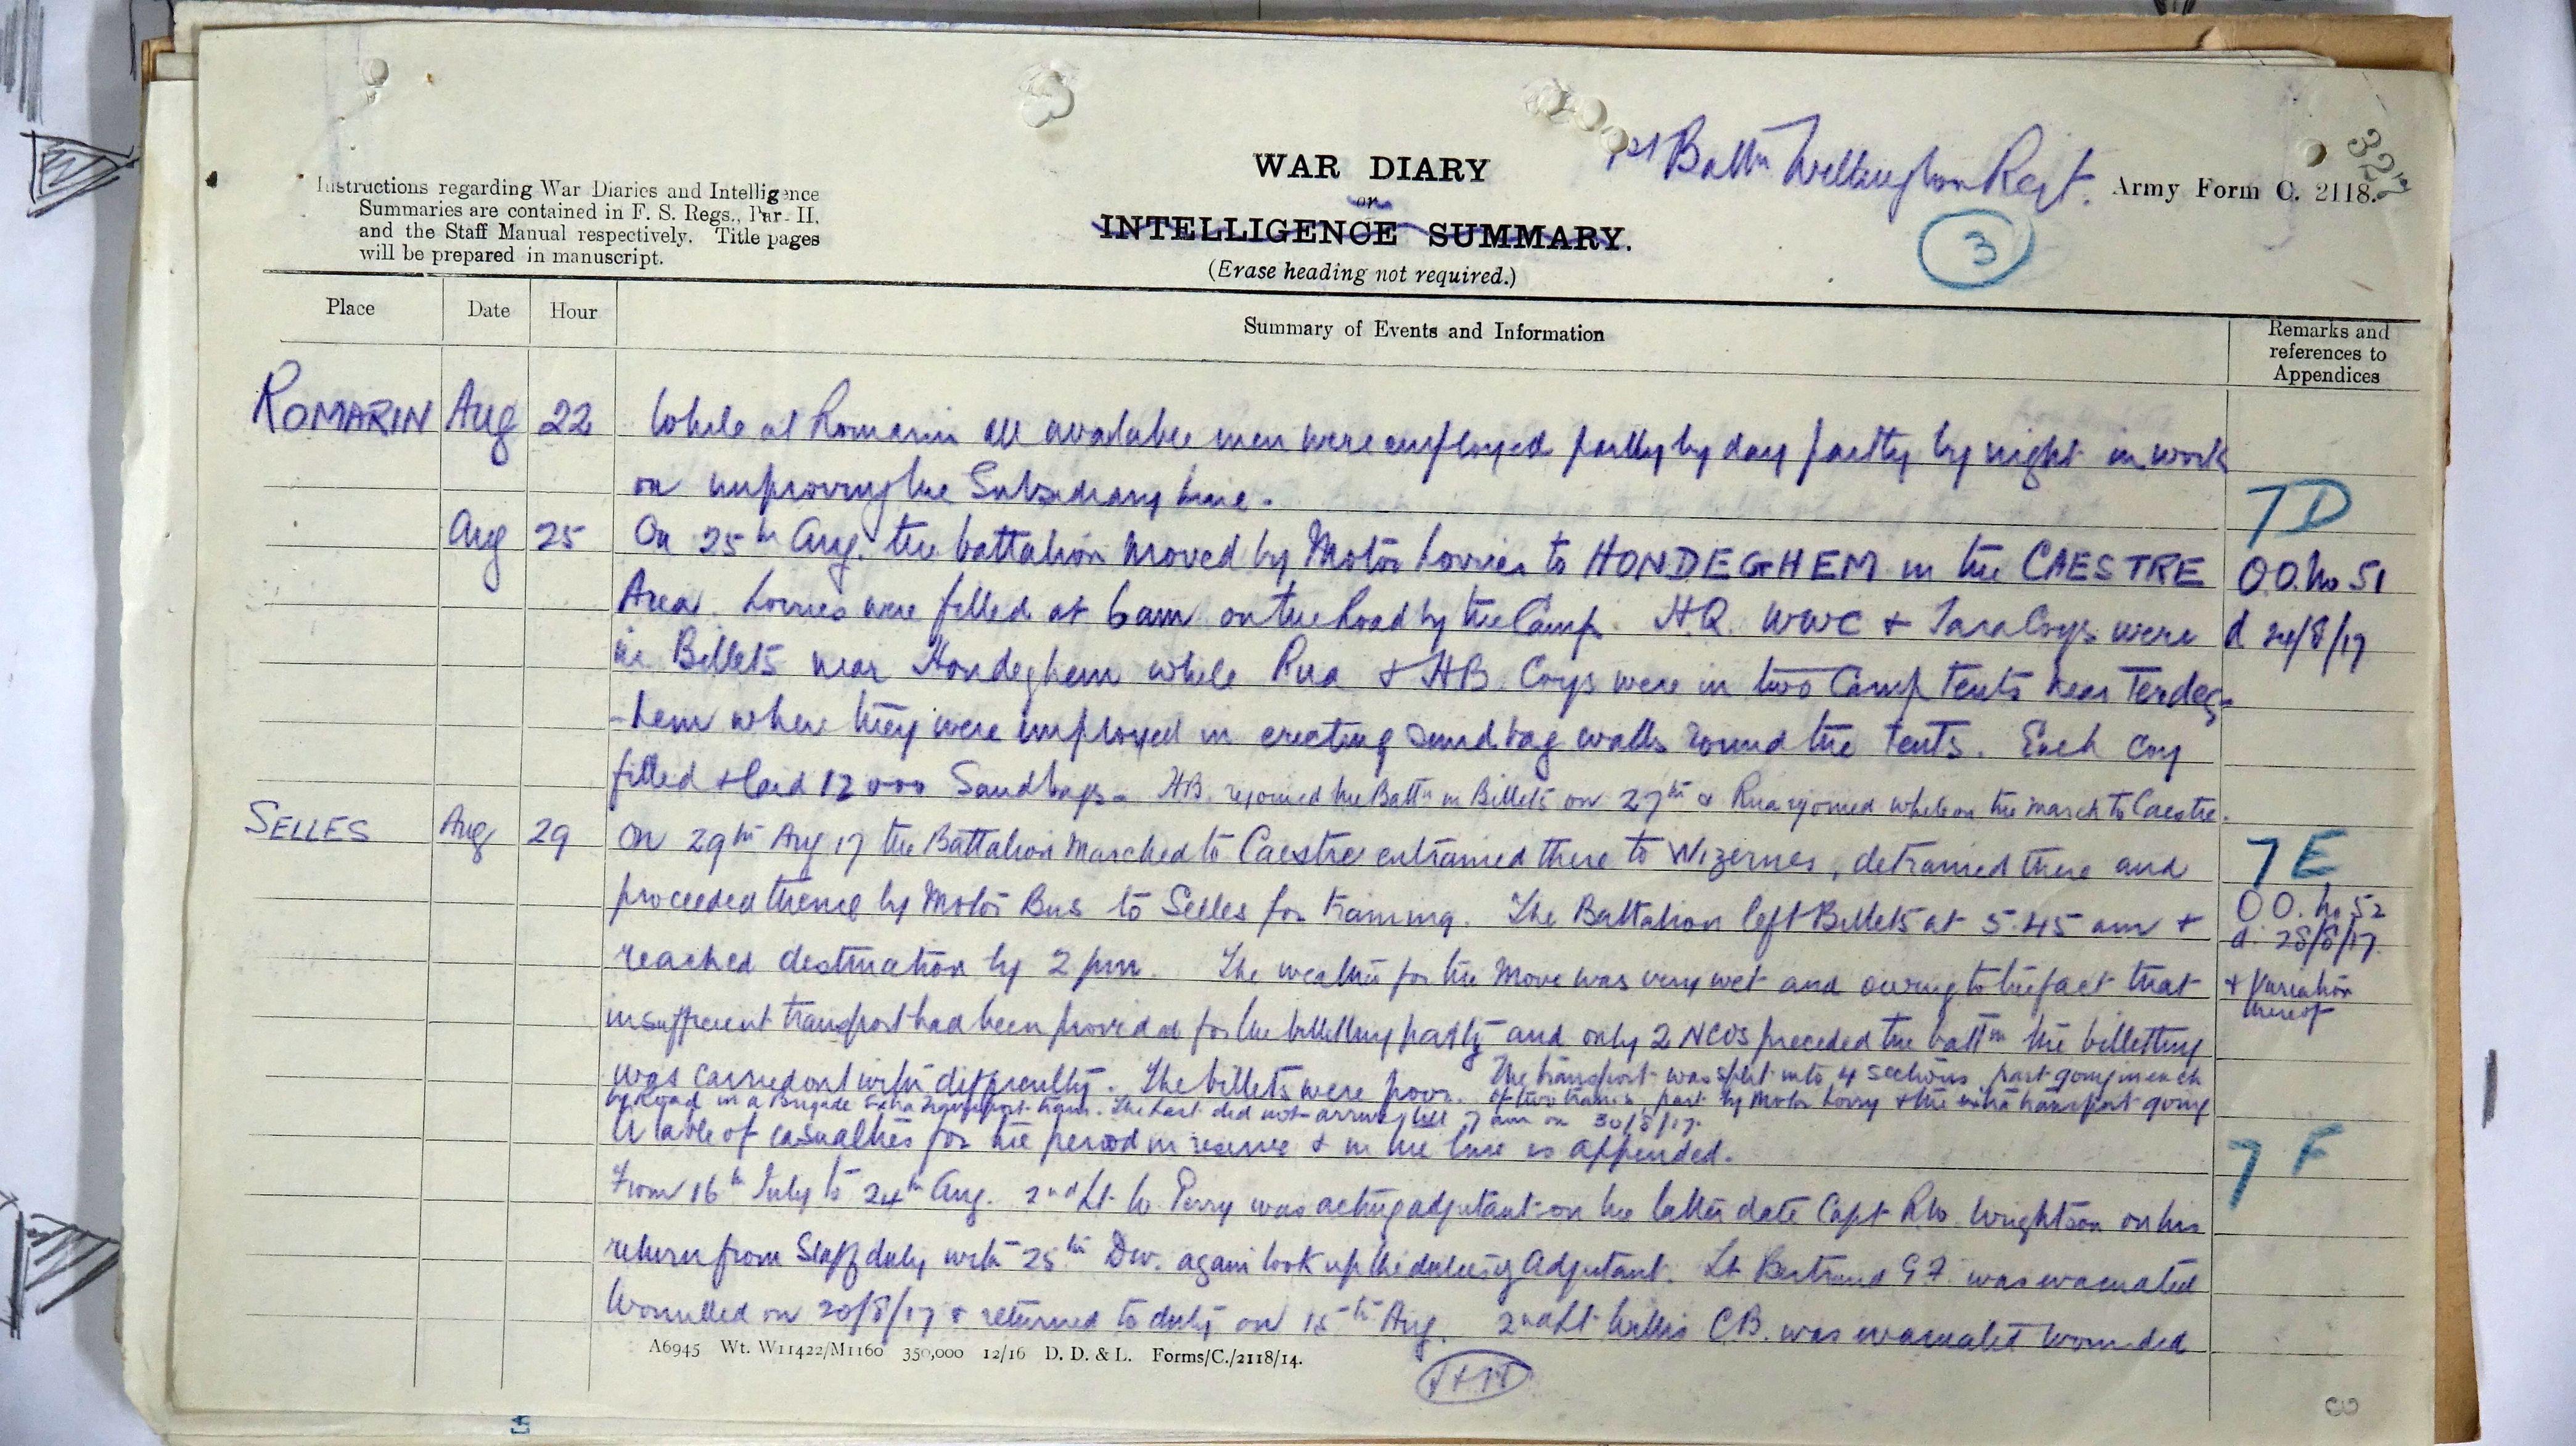 1st Battn Wellington Regt.
327
WAR DIARY
or
INTELLIGENCE SUMMARY.
(Erase heading not required.)
Instructions regarding War Diaries and Intelligence
Summaries are contained in F. S. Regs., Par. II.
and the Staff Manual respectively. Title pages
will be prepared in manuscript.
Army Form C. 2118.
3
Place Date Hour Summary of Events and Information Remarks and
references to
Appendices
ROMARIN Aug 22 While at Romarin all available men were employed partly by day partly by night in work
on improving the Subsidiary line.
7D
Aug 25 On 25th Aug. the battalion moved by Motor Lorries to HONDEGHEM in the CAESTRE O.O. No 51
Area. Lorries were filled at 6am on the Road by the Camp. H.Q. WWC & Tara Coys were d 24/8/17
in Billets near Hondeghem while Rua & HB. Coys were in two Camp Tents near Terdeg-
-hem where they were employed in erecting Sandbag walls round the Tents. Each Coy
filled & laid 12000 Sandbags. HB. rejoined the Battn in Billets on 27th & Rua rejoined while on the march to Caestre.
SELLES Aug 29 On 29th Aug 17 the Battalion Marched to Caestre entrained there to Wizernes, detrained there and 7E
proceeded thence by Motor Bus to Selles for training. The Battalion left Billets at 5.45 am & O O. No 52
d. 28/8/17
reached destination by 2 pm. The weather for the Move was very wet and owing to the fact that & Variation
thereof
insufficient transport had been provided for the billetting party and only 2 NCOs preceded the battn the billetting
was carried out with difficulty. The billets were poor. The transport was split into 4 sections, part going in each
of two trains part by Motor Lorry & the extra transport going
by Road in a Brigade Extra Transport train. The last did not arrive till 7 am on 30/8/17.
A table of casualties for the period in reserve & in the line is appended. 7F
From 16th July to 24th Aug. 2nd Lt W. Perry was acting adjutant on the latter date Capt R.W. Wrightson on his
return from Staff duty with 25th Div. again took up the duties of Adjutant. Lt Bertrand G F. was evacuated
Wounded on 20/8/17 & returned to duty on 15th Aug. 2nd Lt Willis C.B. was evacuated wounded
A6945 Wt. W11422/M1160 350,000 12/16 D. D. & L. Forms/C./2118/14.
3